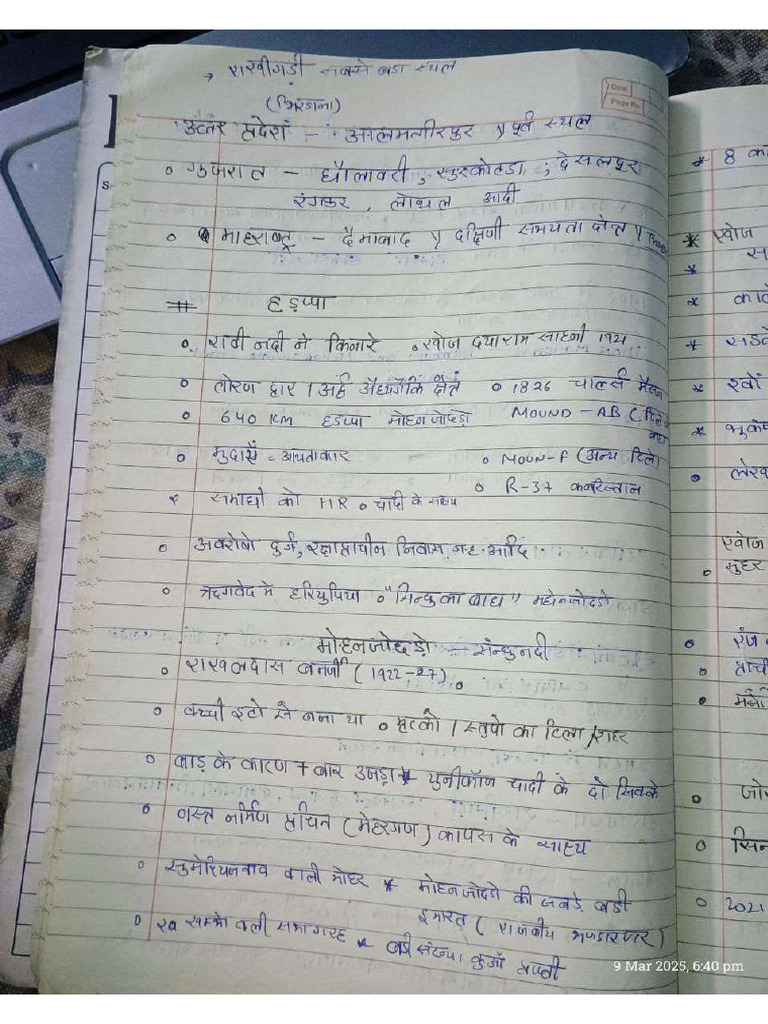 → राखीगड़ी सबसे बडा स्थल
(भिरडाना)
Date
Page No
उत्तर प्रदेश – आलमगीरपुर y पूर्व स्थल
गुजरात – धौलावरी, सुरकोतडा, ; देसलपुर
रंगपुर, लोथल आदी
माहराष्ट्र – दैमाबाद y दक्षिणी सभयता क्षेत्र y
# हडप्पा
रावी नदी ने किनारे ० खोज दयाराम साहनी 1921
तोरण द्वार । अर्ध औधोगिक क्षेत्र ० 1826 चार्ल्स मैसन
640 KM हडप्पा मोहनजोदडो MOUND – AB (
मुद्राएँ = आयताकार ० MOUN-F (अन्य टिले)
समाधी को HR ० चादी के साक्ष्य ० R-37 कबरिस्तान
अवशेषो दुर्ग, रक्षाप्राचीन निवास गृह आदि
ऋगवेद मे हरियुपिया ० "सिन्धु का बाघ" y मोहनजोदडो
मोहनजोदडो – सिन्धु नदी
राखलदास बनर्जी (1922-27) ०
कच्ची इटो से बना था ० मृतको / स्तुपो का टिला / शहर
बाड़ के कारण 7 बार उजड़ा * युनीकॉर्न चादी के दो सिक्के
वस्त्र निर्माण प्रचिन (मेहरगण) कापास के साक्ष्य
सुमेरियन नाव वाली मोहर * मोहनजोदडो की सबसे बडी
इमारत ( राजकीय भण्डारघर)
20 खम्भो वली सभागरह * बडी संख्या कुआँ प्राप्ती
* 8
* खोज
*
*
* सडके
*
*
० लेख
खोज
० मुहर
०
०
०
०
० सिन
० 2021
9 Mar 2025, 6:40 pm